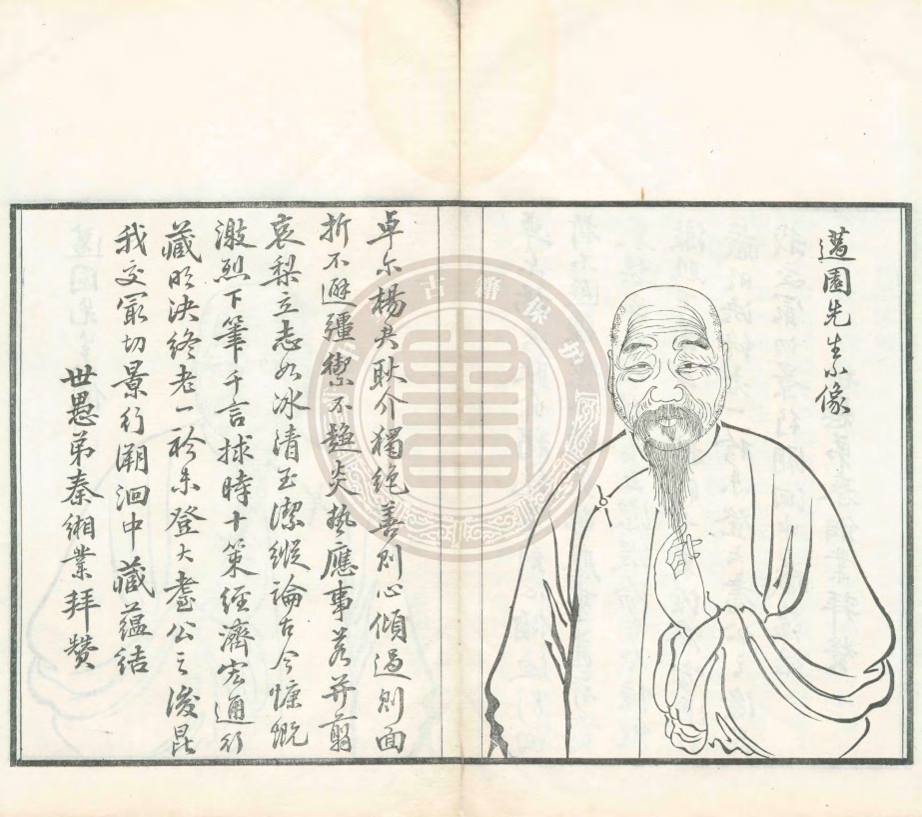 薖園先生小像
卓尒楊君耿介獨絕善則心傾過則面
折不避彊禦不趨炎熱應事若并翦
哀梨立志如冰清玉潔縱論古今慷慨
激烈下筆千言捄時十策經濟宏通行
藏明決終老一衿未登大耋公之後昆
我交冣切景行溯洄中藏蘊結
世愚弟秦緗業拜贊